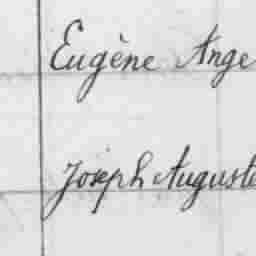 Eugène Ange
Joseph Auguste